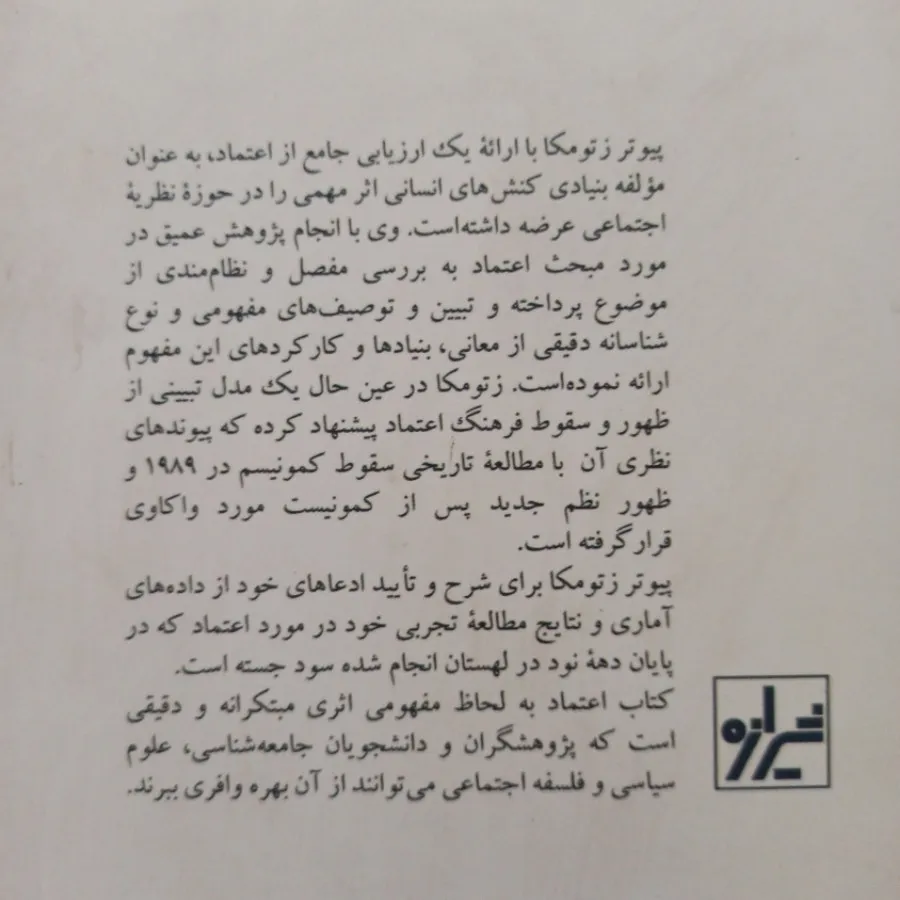 پیوتر زتومکا با ارائهٔ یک ارزیابی جامع از اعتماد، به عنوان
مؤلفه بنیادی کنش‌های انسانی اثر مهمی را در حوزهٔ نظریهٔ
اجتماعی عرضه داشته‌است. وی با انجام پژوهش عمیق در
مورد مبحث اعتماد به بررسی مفصل و نظام‌مندی از
موضوع پرداخته و تبیین و توصیف‌های مفهومی و نوع
شناسانه دقیقی از معانی، بنیادها و کارکردهای این مفهوم
ارائه نموده‌است. زتومکا در عین حال یک مدل تبیینی از
ظهور و سقوط فرهنگ اعتماد پیشنهاد کرده که پیوندهای
نظری آن با مطالعهٔ تاریخی سقوط کمونیسم در ۱۹۸۹ و
ظهور نظم جدید پس از کمونیست مورد واکاوی
قرارگرفته است.
پیوتر زتومکا برای شرح و تأیید ادعاهای خود از داده‌های
آماری و نتایج مطالعهٔ تجربی خود در مورد اعتماد که در
پایان دههٔ نود در لهستان انجام شده سود جسته است.
کتاب اعتماد به لحاظ مفهومی اثری مبتکرانه و دقیقی
است که پژوهشگران و دانشجویان جامعه‌شناسی، علوم
سیاسی و فلسفه اجتماعی می‌توانند از آن بهره وافری ببرند.
شیرازه